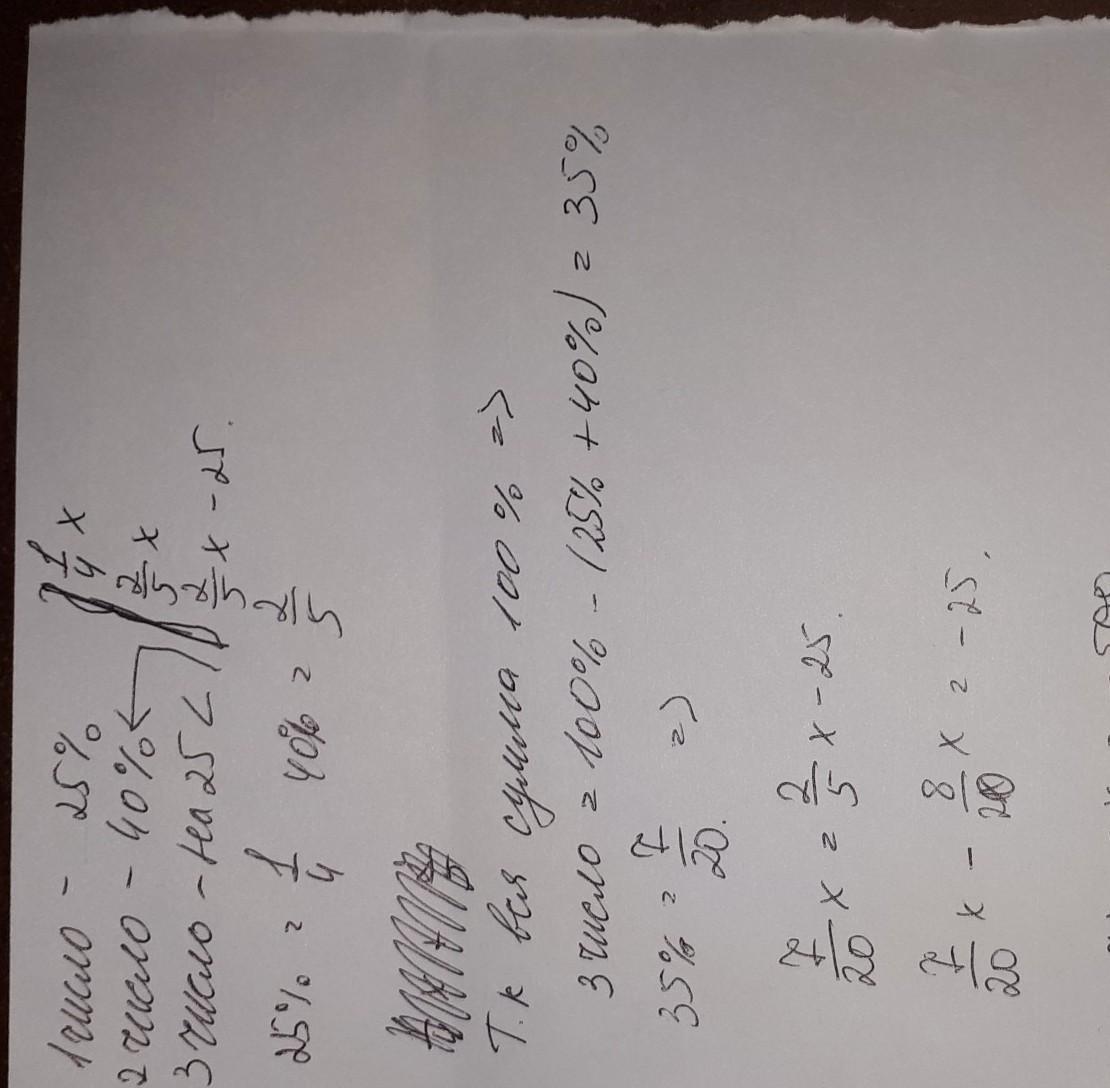 1 число - 25% 1/4 x
2 число - 40% 2/5 x
3 число - на 25 < 2/5 x - 25.
25% = 1/4 40% = 2/5
Т.к вся сумма 100% =>
3 число = 100% - (25% + 40%) = 35%
35% = 7/20. =>
7/20 x = 2/5 x - 25.
7/20 x - 8/20 x = -25.